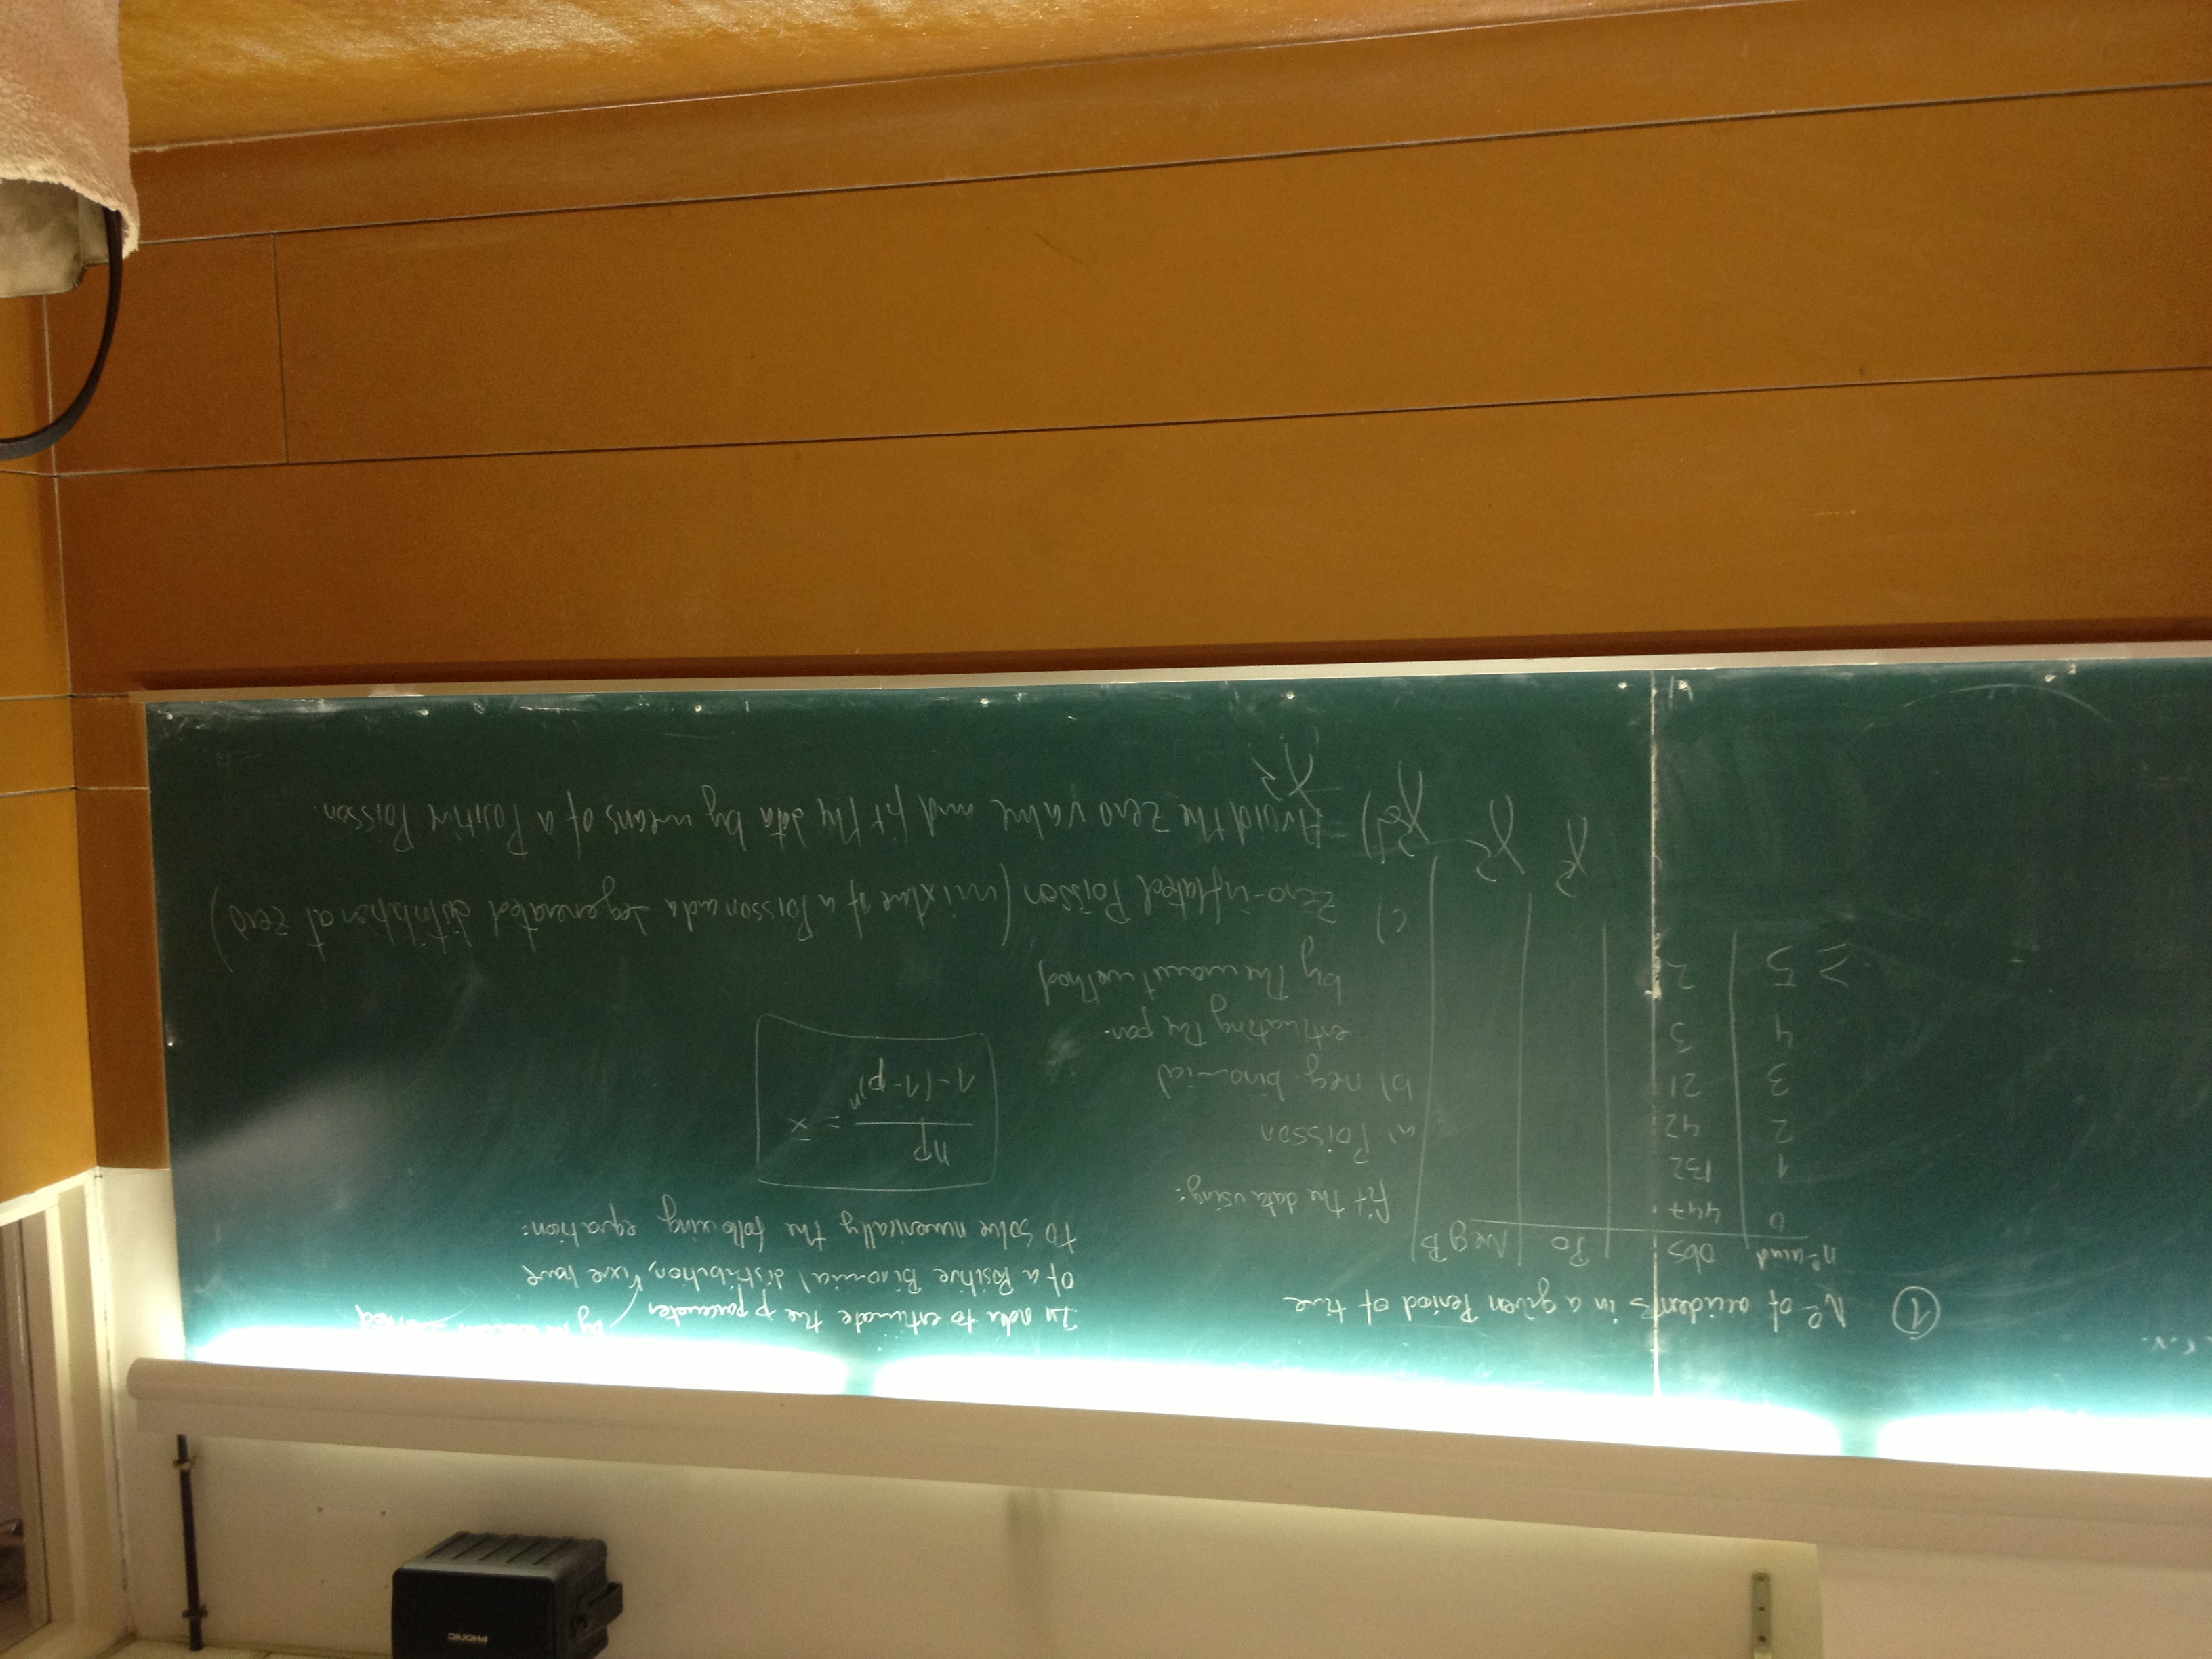 PHONIC
r.v.
① Nº of accidents in a given Period of time
nº accid obs Po Neg B
0 447
1 132
2 42
3 21
4 3
≥ 5 2
χ² χ² χ² χ²
fit the data using:
a) Poisson
b) neg. binomial
estimating the par.
by the moment method
c) Zero-inflated Poisson (mixture of a Poisson and a degenerated distribution at zero)
d) Avoid the zero value and fit the data by means of a Positive Poisson.
In order to estimate the p parameter by method
of a Positive Binomial distribution, we have
to solve numerically the following equation:
np / 1-(1-p)ⁿ = x̄